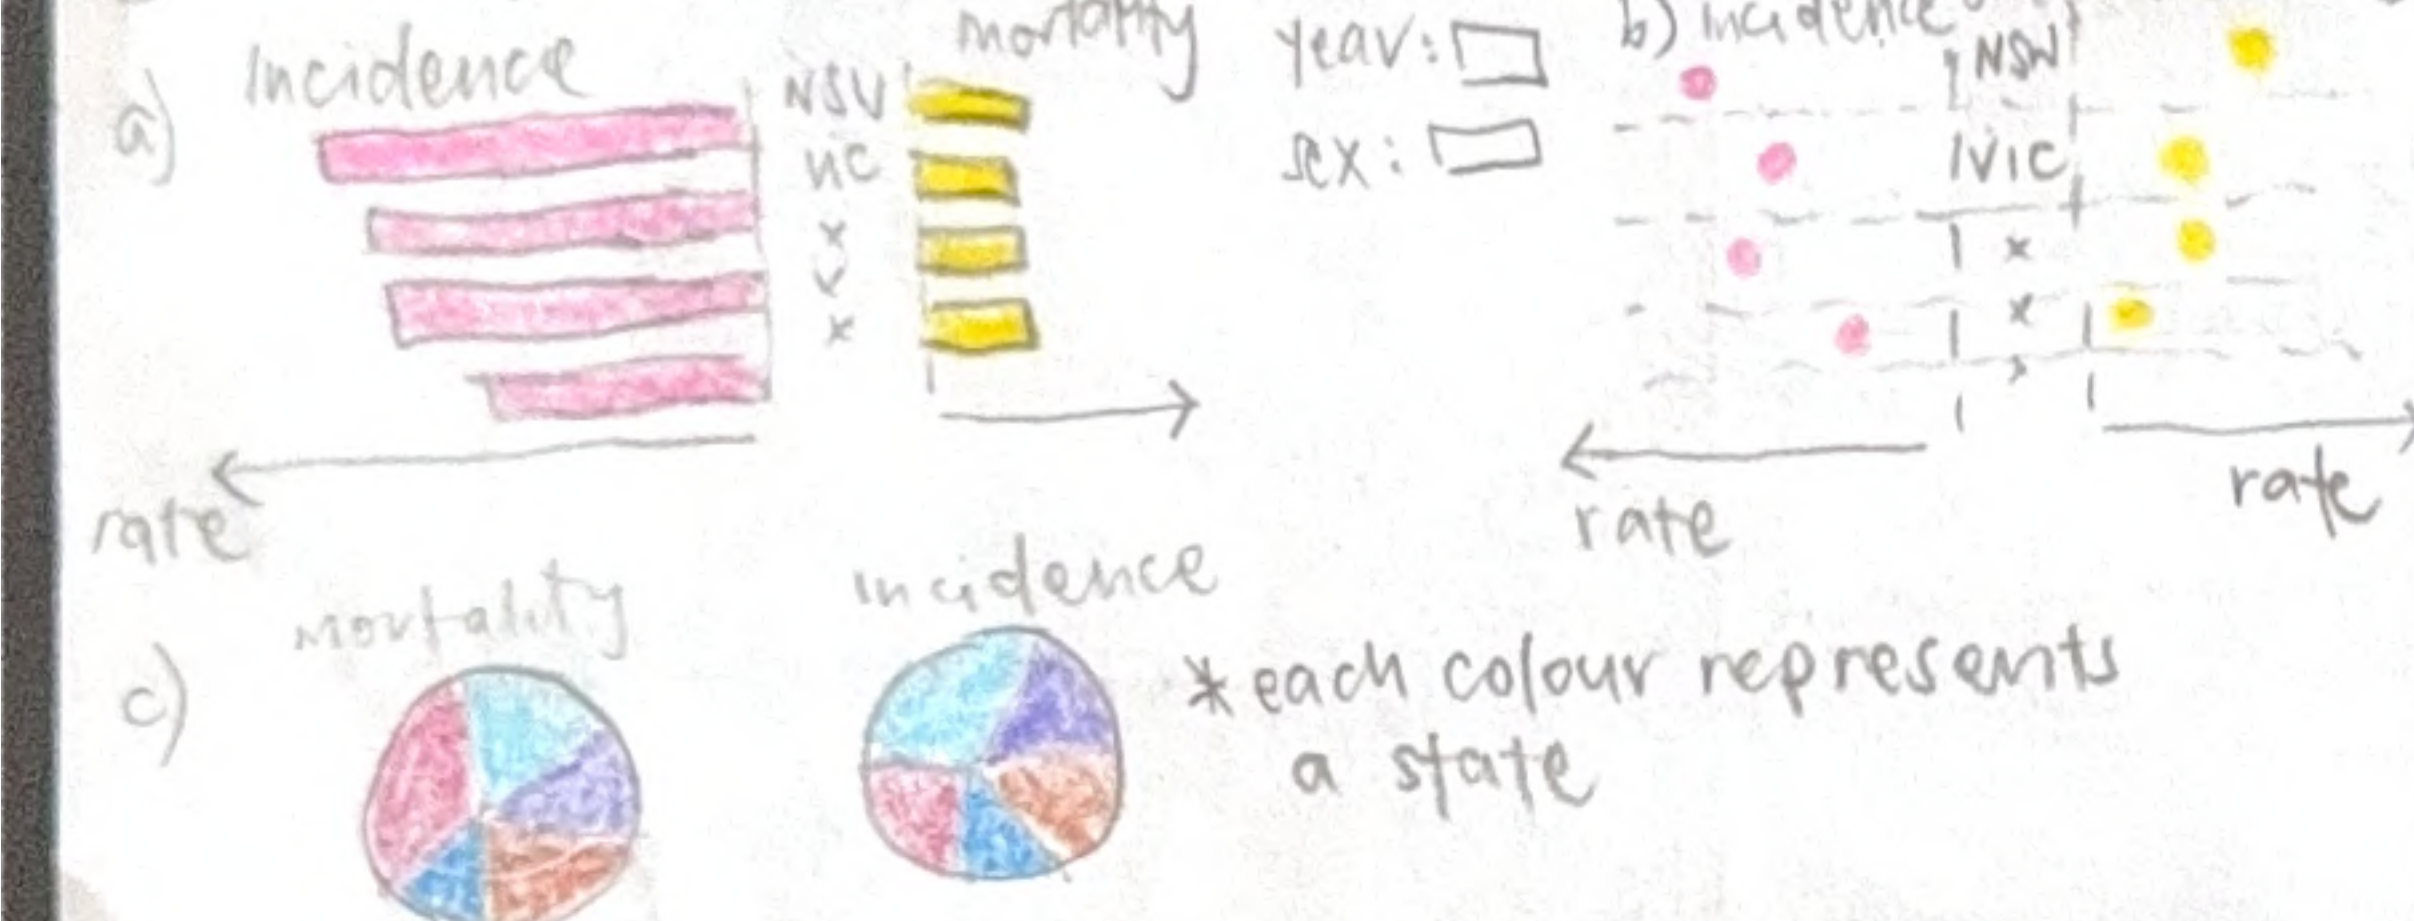 a)
Incidence
mortality
NSW
VIC
x
x
x
rate
year:
sex:
b) incidence
NSW
VIC
x
x
x
rate
rate
c)
mortality
incidence
* each colour represents
a state